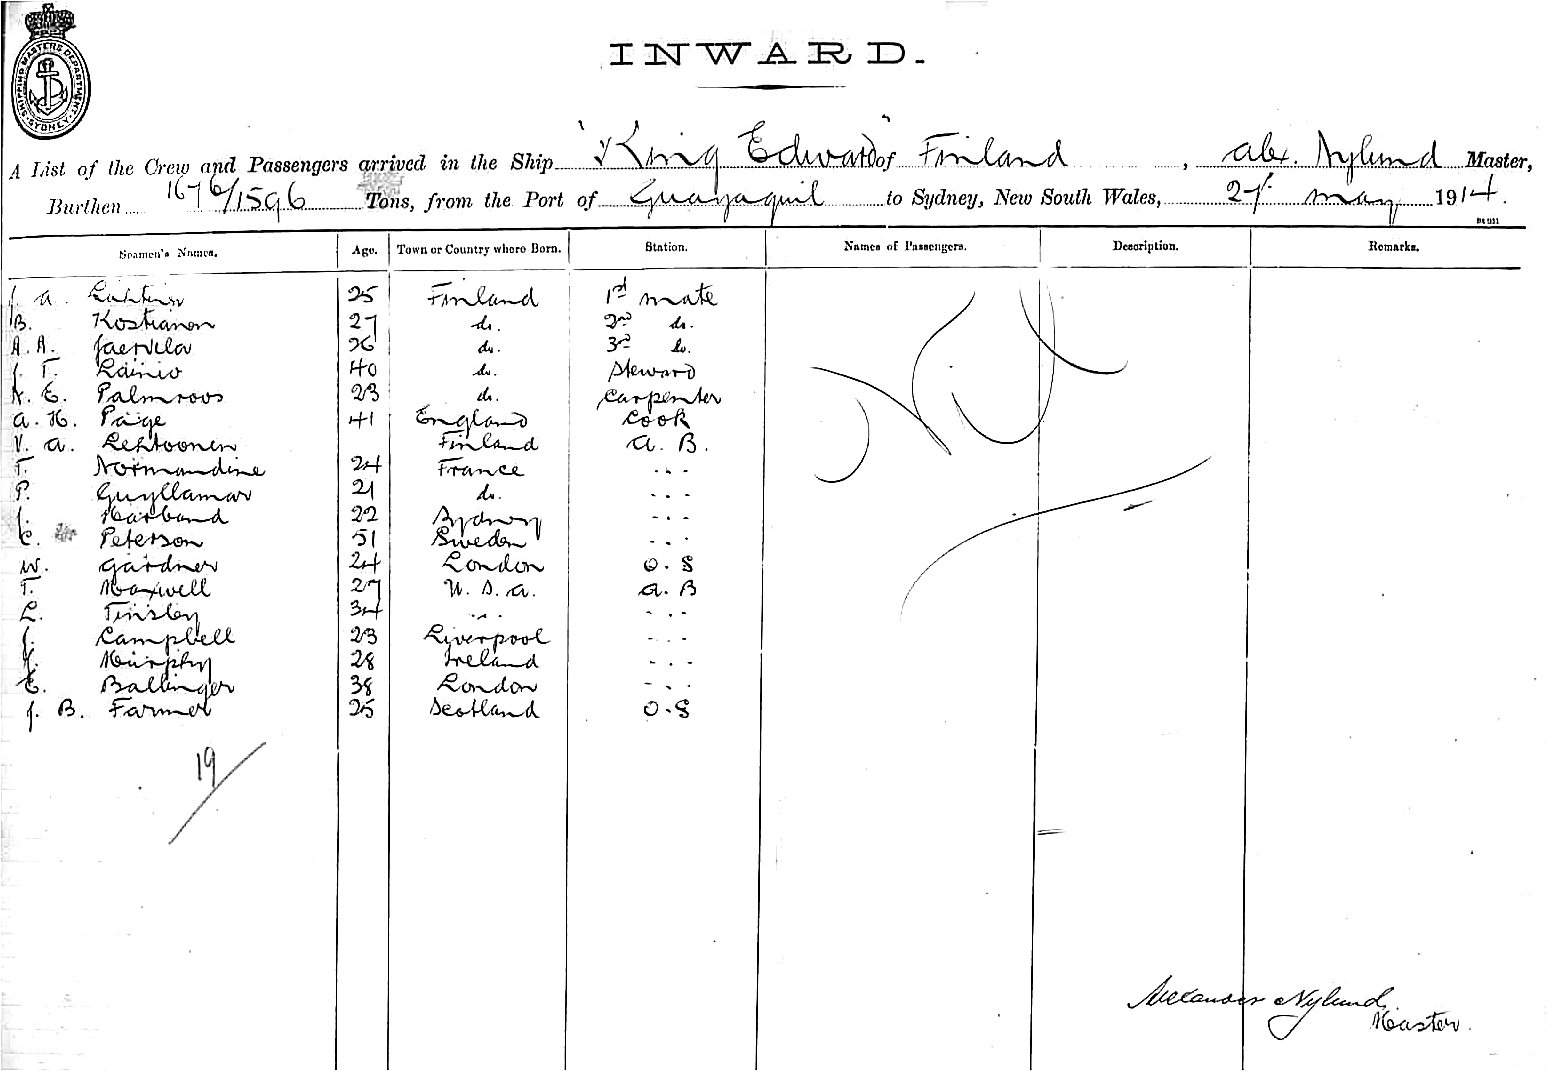 SHIPPING MASTERS DEPARTMENT SYDNEY
INWARD.
A List of the Crew and Passengers arrived in the Ship "King Edward" of Finland, Alex. Nylund Master,
Burthen 1676/1596 Tons, from the Port of Guayaquil to Sydney, New South Wales, 27 May 1914.
Seamen's Names. Age. Town or Country where Born. Station. Names of Passengers. Description. Remarks.
J. A. 25 Finland 1st mate
B. Kostianon 27 do. 2nd do.
A. A. Jaervila 26 do. 3rd do.
J. T. Lainio 40 do. Steward
E. Palmroos 23 do. Carpenter
A. H. Paige 41 England Cook
V. A. Lehtoonen Finland A. B.
F. Normandine 24 France " " "
P. Guyllamar 21 do. " " "
J. Harband 22 Sydney " " "
C. Peterson 51 Sweden " " "
W. Gardner 24 London O. S
T. Maxwell 27 U. S. A. A. B
L. Tinsley 34 " " " " "
J. Campbell 23 Liverpool " " "
Murphy 28 Ireland " " "
E. Ballinger 38 London " " "
J. B. Farmer 25 Scotland O. S
Nil
19
Alexander Nylund,
Master.